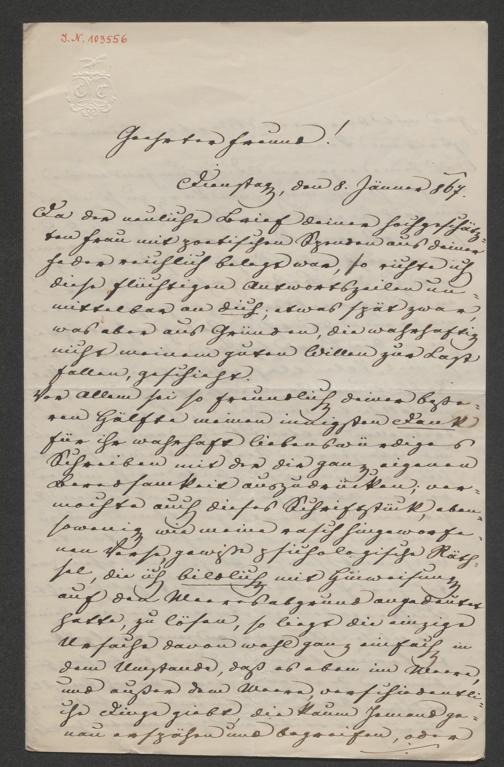 J.N. 103556
C C
Geehrter Freund!
Dienstag, den 8. Jänner 867.
Da der neuliche Brief deiner hochgeschätz-
ten Frau mit poetischen Spenden aus deiner
Feder reichlich belegt war, so richte ich
diese flüchtigen Antwortszeilen un-
mittelbar an dich; etwas spät zwar,
was aber aus Gründen, die wahrhaftig
nicht meinem guten Willen zur Last
fallen, geschieht.
Vor Allem sei so freundlich deiner beße-
ren Hälfte meinen innigsten Dank
für ihr wahrhaft liebenswürdiges
Schreiben mit der dir ganz eigenen
Beredsamkeit auszudrücken; ver-
mochte auch dieses Schriftstück, eben-
sowenig wie meine rasch hingeworfe-
nen Verse, gewiße psichologische Räth-
sel, die ich bildlich mit Hinweisung
auf den Meeresabgrund angedeutet
hatte, zu lösen, so liegt die einzige
Ursache davon wohl ganz einfach in
dem Umstande, daß es eben im Meere,
und außer dem Meere, verschiedentli-
che Dinge giebt, die kaum Jemand ge-
nau erspähen und begreifen, oder